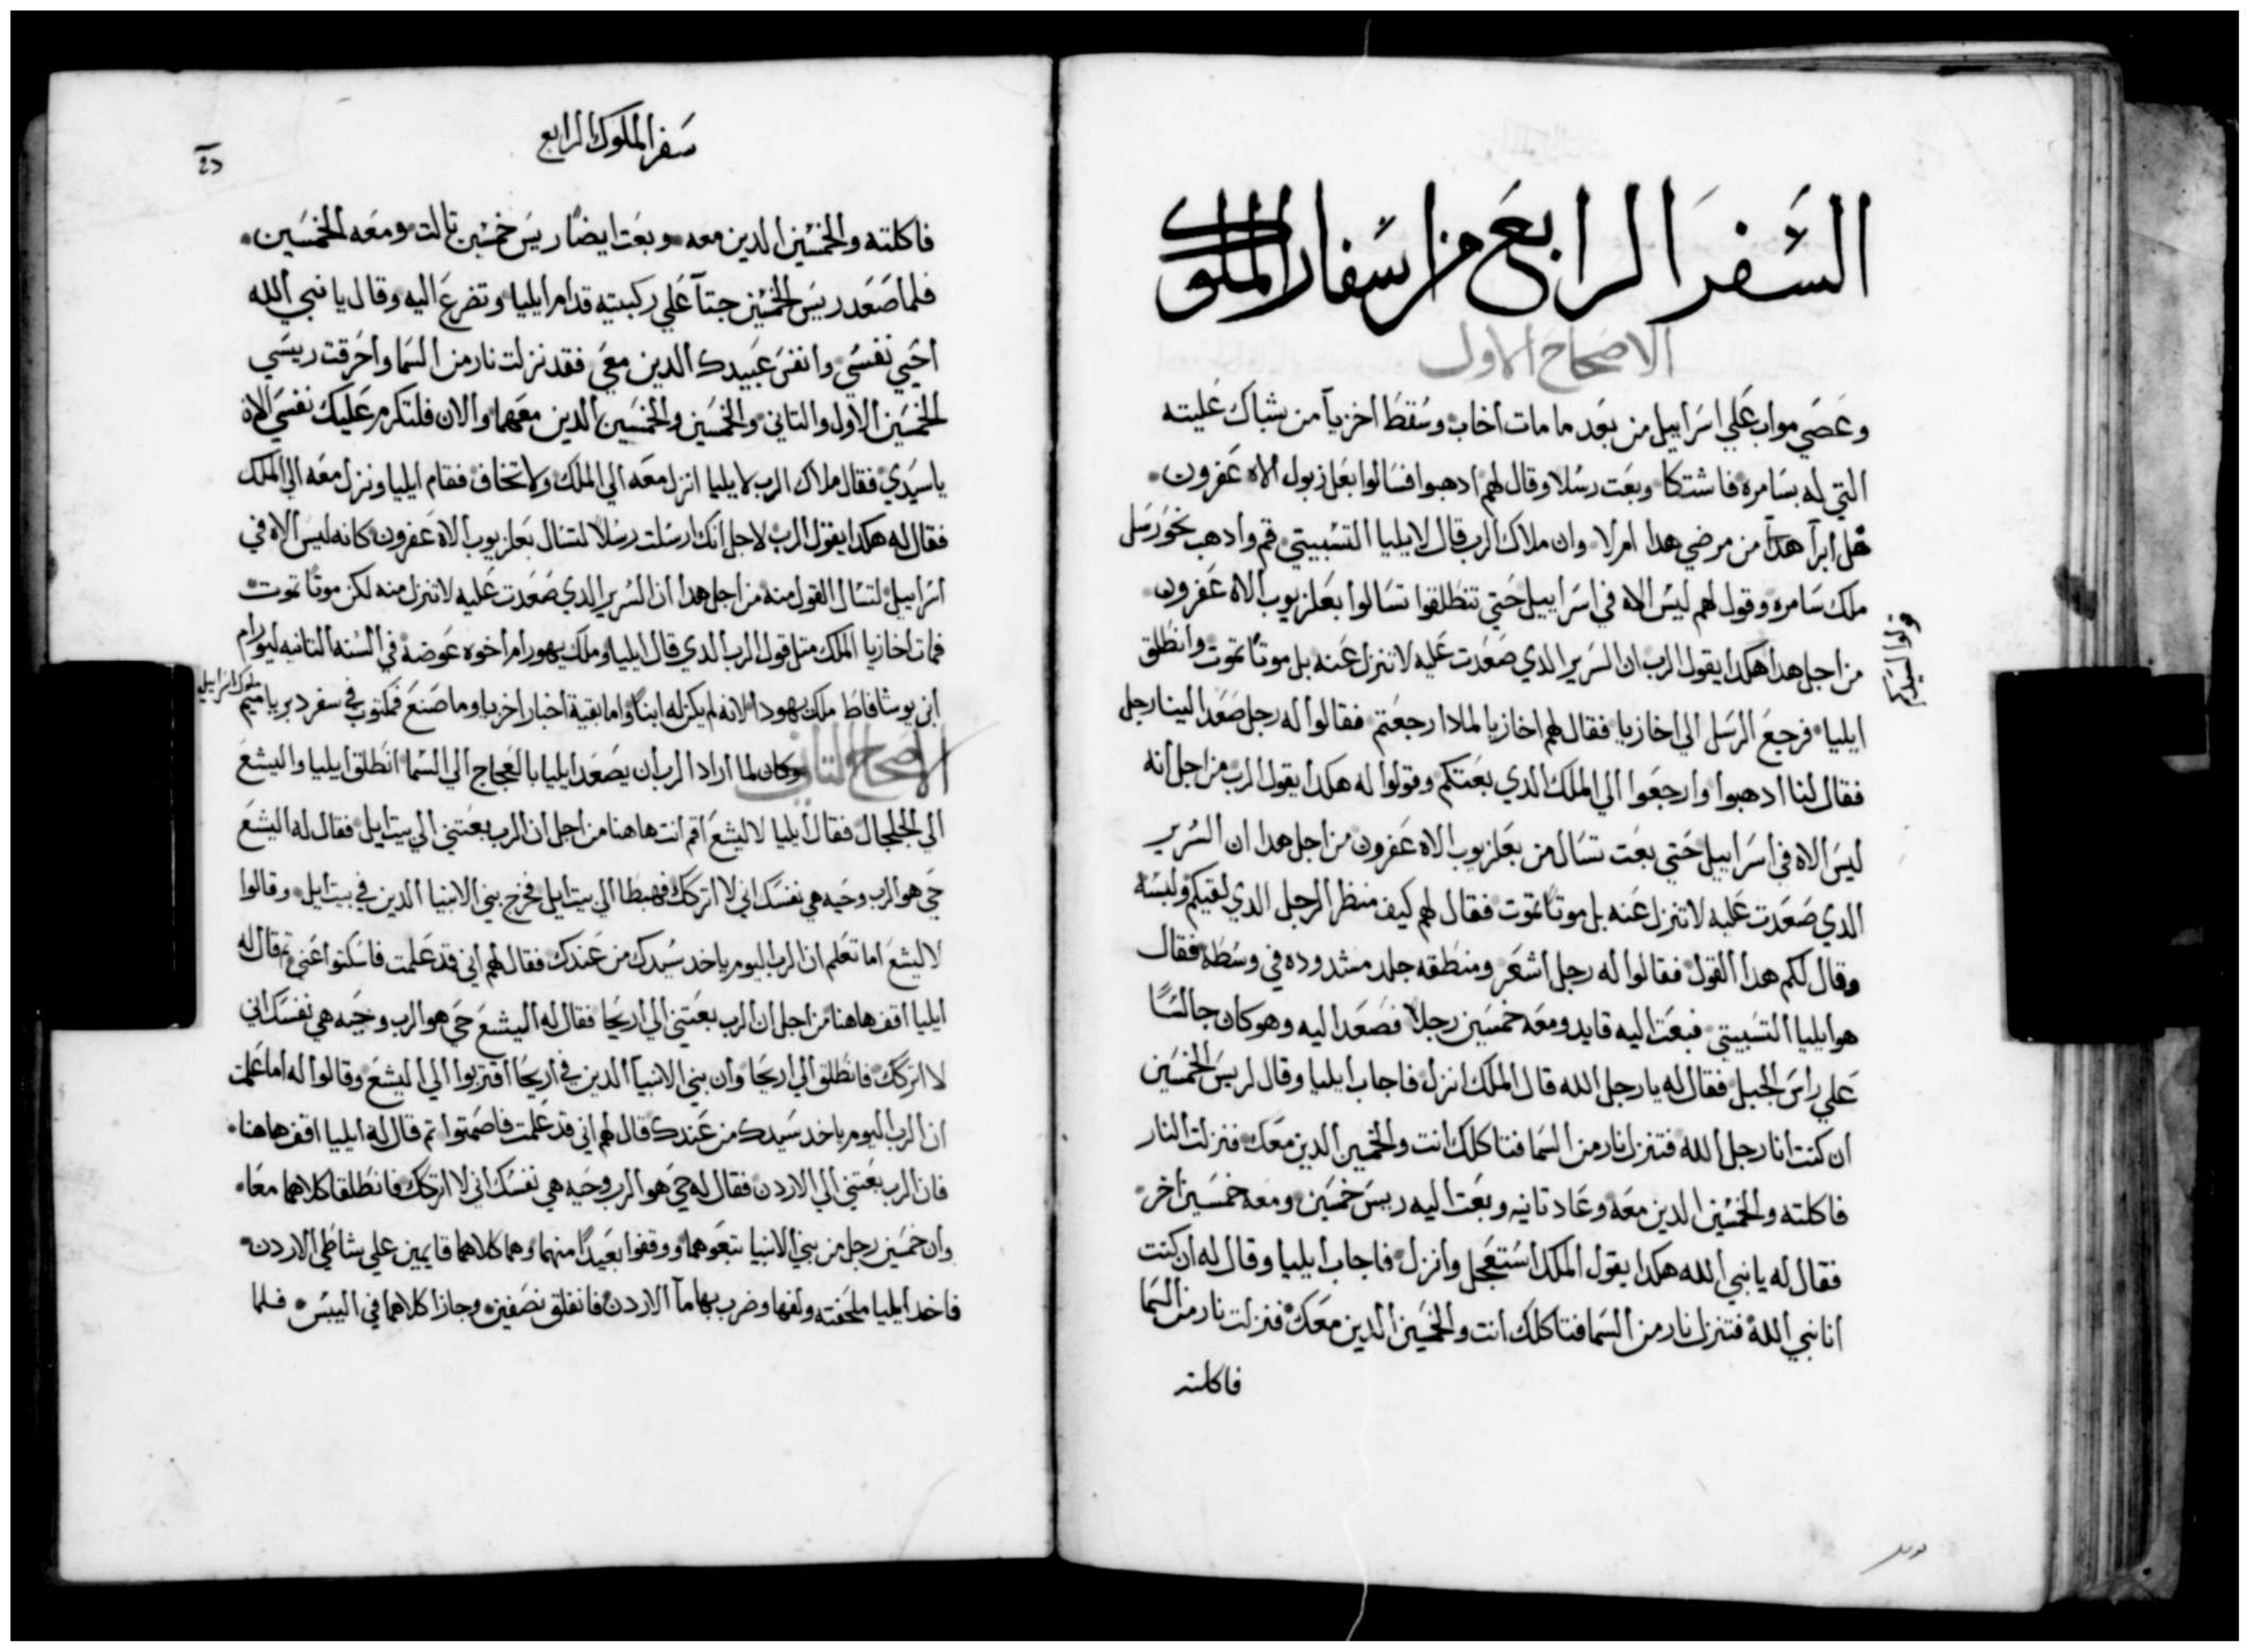 السفر الرابع من اسفار الملوك
الاصحاح الاول
وعصي مواب علي اسراييل من بعد ما مات اخاب وسقط اخزيا من شباك عليته
التي له بسامره فاشتكا وبعت رسلا وقال لهم ادهبوا فسالوا بعلزبول الاه عفرون
هل ابرا هدا من مرضي هدا ام لا وان ملاك الرب قال لايليا التسبيتي قم وادهب نحو رسل
ملك سامره وقول لهم ليس الاه في اسراييل حتي تنطلقوا تسالوا بعلزبوب الاه عفرون
من اجل هدا هكدا يقول الرب ان السرير الدي صعدت عليه لا تنزل عنه بل موتا تموت وانطلق
ايليا فرجع الرسل الي اخازيا فقال لهم اخازيا لمادا رجعتم فقالوا له رجل صعد الينا رجل
فقال لنا ادهبوا وارجعوا الي الملك الدي بعتكم وقولوا له هكدا يقول الرب من اجل انه
ليس الاه في اسراييل حتي بعت تسال من بعلزبوب الاه عفرون من اجل هدا ان السرير
الدي صعدت عليه لا تنزل عنه بل موتا تموت فقال لهم كيف منظر الرجل الدي لقيكم ولبسه
وقال لكم هدا القول فقالوا له رجل اشعر ومنطقه جلد مشدوده في وسطه فقال
هو ايليا التسبيتي فبعت اليه قايد ومعه خمسين رجلا فصعد اليه وهو كان جالسا
علي راس الجبل فقال له يا رجل الله قال الملك انزل فاجاب ايليا وقال لريس الخمسين
ان كنت انا رجل الله فتنزل نار من السما فتاكلك انت والخمسين الدين معك فنزلت النار
فاكلته والخمسين الدين معه وعاد تانيه وبعت اليه ريس خمسين ومعه خمسين اخر
فقال له يا نبي الله هكدا يقول الملك استعجل وانزل فاجاب ايليا وقال له ان كنت
انا نبي الله فتنزل نار من السما فتاكلك انت والخمسين الدين معك فنزلت نار من السما
فاكلته
سفر الملوك الرابع
فاكلته والخمسين الدين معه وبعت ايضا ريس خمسين تالت ومعه الخمسين
فلما صعد ريس الخمسين جتا علي ركبتيه قدام ايليا وتضرع اليه وقال يا نبي الله
احيي نفسي وانفس عبيدك الدين معي فقد نزلت نار من السما واحرقت ريسي
الخمسين الاول والتاني والخمسين والخمسين الدين معهما والان فلتكرم عليك نفسي الان
يا سيدي فقال ملاك الرب لايليا انزل معه الي الملك ولا تخاف فقام ايليا ونزل معه الي الملك
فقال له هكدا يقول الرب لاجل انك ارسلت رسلا لتسال بعلزبوب الاه عفرون كانه ليس الاه في
اسراييل لتسال القول منه من اجل هدا ان السرير الدي صعدت عليه لا تنزل منه لكن موتا تموت
فمات اخازيا الملك متل قول الرب الدي قال ايليا وملك يهورام اخوه عوضه في السنه التانيه ليورام
ابن يوشافاط ملك يهودا لانه لم يكن له ابنا واما بقية اخبار اخزيا وما صنع فمكتوب في سفر دبرياميم
ملوك اسراييل
الاصحاح التاني وكان لما اراد الرب ان يصعد ايليا بالعجاج الي السما انطلق ايليا واليشع
الي الجلجال فقال ايليا لاليشع اقم انت هاهنا من اجل ان الرب بعتني الي بيت ايل فقال له اليشع
حي هو الرب وحيه هي نفسك اني لا اتركك فهبطا الي بيت ايل فخرج بني الانبيا الدين في بيت ايل وقالوا
لاليشع اما تعلم ان الرب اليوم ياخد سيدك من عندك فقال لهم اني قد علمت فاسكتوا عني تم قال له
ايليا اقف هاهنا من اجل ان الرب بعتني الي اريحا فقال له اليشع حي هو الرب وحيه هي نفسك اني
لا اتركك فانطلق الي اريحا وان بني الانبيا الدين في اريحا اقتربوا الي اليشع وقالوا له اما علمت
ان الرب اليوم ياخد سيدك من عندك قال لهم اني قد علمت فاصمتوا تم قال له ايليا اقف هاهنا
فان الرب بعتني الي الاردن فقال له حي هو الرب وحيه هي نفسك اني لا اتركك فانطلقا كلاهما معا
وان خمسين رجل من بني الانبيا تبعوهما ووقفوا بعيدا منهما وهما كلاهما قايمين علي شاطي الاردن
فاخد ايليا ملحفته ولفها وضرب بها ما الاردن فانفلق نصفين وجازا كلاهما في اليبس فلما